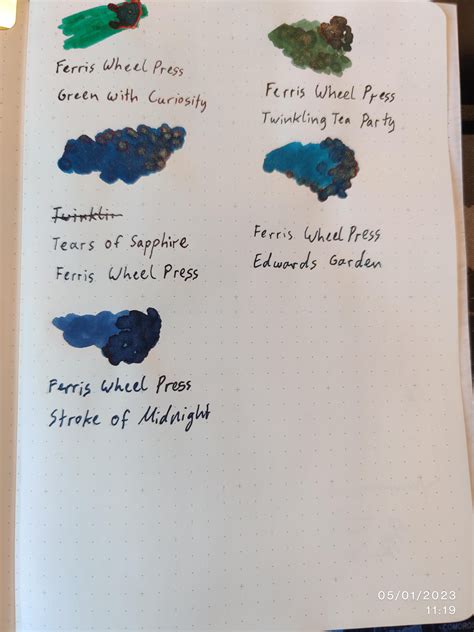 Ferris Wheel Press
Green With Curiosity
Ferris Wheel Press
Twinkling Tea Party
Twinklin
Tears of Sapphire
Ferris Wheel Press
Ferris Wheel Press
Edwards Garden
Ferris Wheel Press
Stroke of Midnight
05/01/2023
11:19